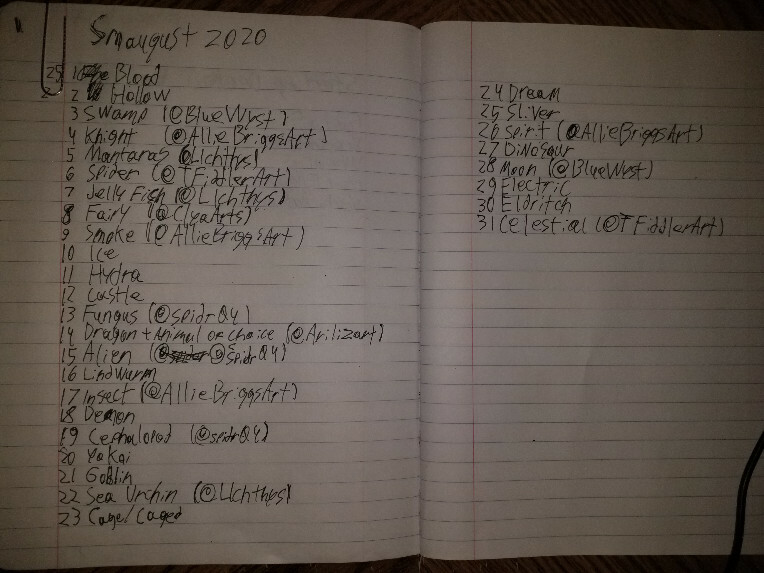 Smaugust 2020
1 Blood
2 Hollow
3 Swamp (@BlueWyst)
4 Knight (@AllieBriggsArt)
5 Mantaras @LIchthys)
6 Spider (@TFiddlerArt)
7 Jelly Fish (@LIchthys)
8 Fairy (@ClyaArts)
9 Smoke (@AllieBriggsArt)
10 Ice
11 Hydra
12 Castle
13 Fungus (@spidrQ4)
14 Dragon + Animal of choice (@Arilizart)
15 Alien (@spidrQ4)
16 Lindwurm
17 Insect (@AllieBriggsArt)
18 Demon
19 Cephalopod (@spidrQ4)
20 Yokai
21 Goblin
22 Sea Urchin (@LIchthys)
23 Cage/Caged
24 Dream
25 Sliver
26 Spirit (@AllieBriggsArt)
27 Dinosaur
28 Moon (@BlueWyst)
29 Electric
30 Eldritch
31 Celestial (@TFiddlerArt)